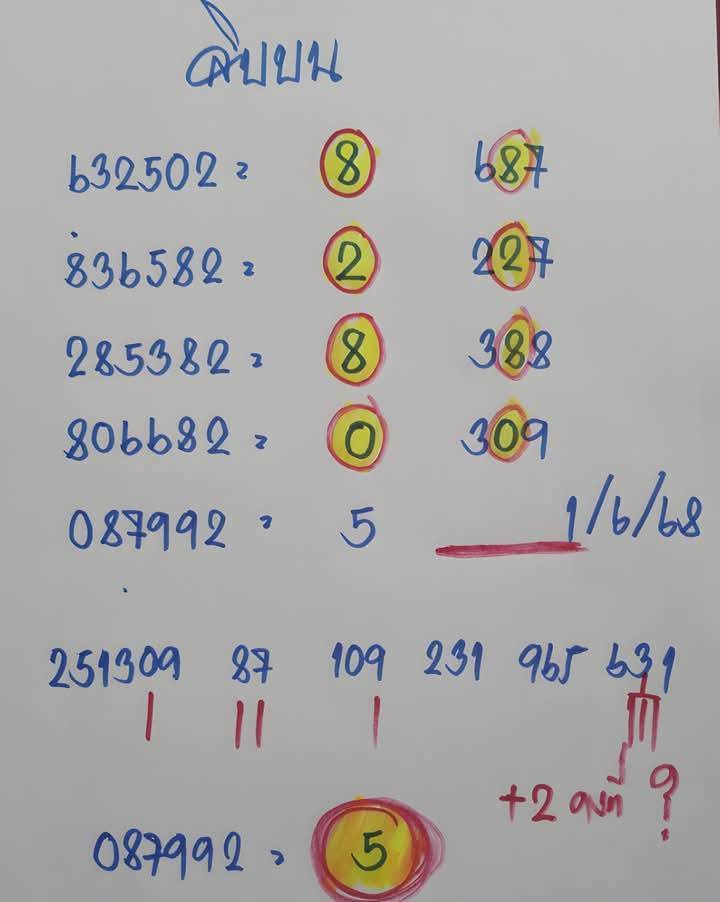 สิบบน
632502 = 8 687
836582 = 2 227
285382 = 8 388
806682 = 0 309
087992 = 5 1/6/68
251309 87 109 231 965 631
+2 คงที่ ?
087992 = 5